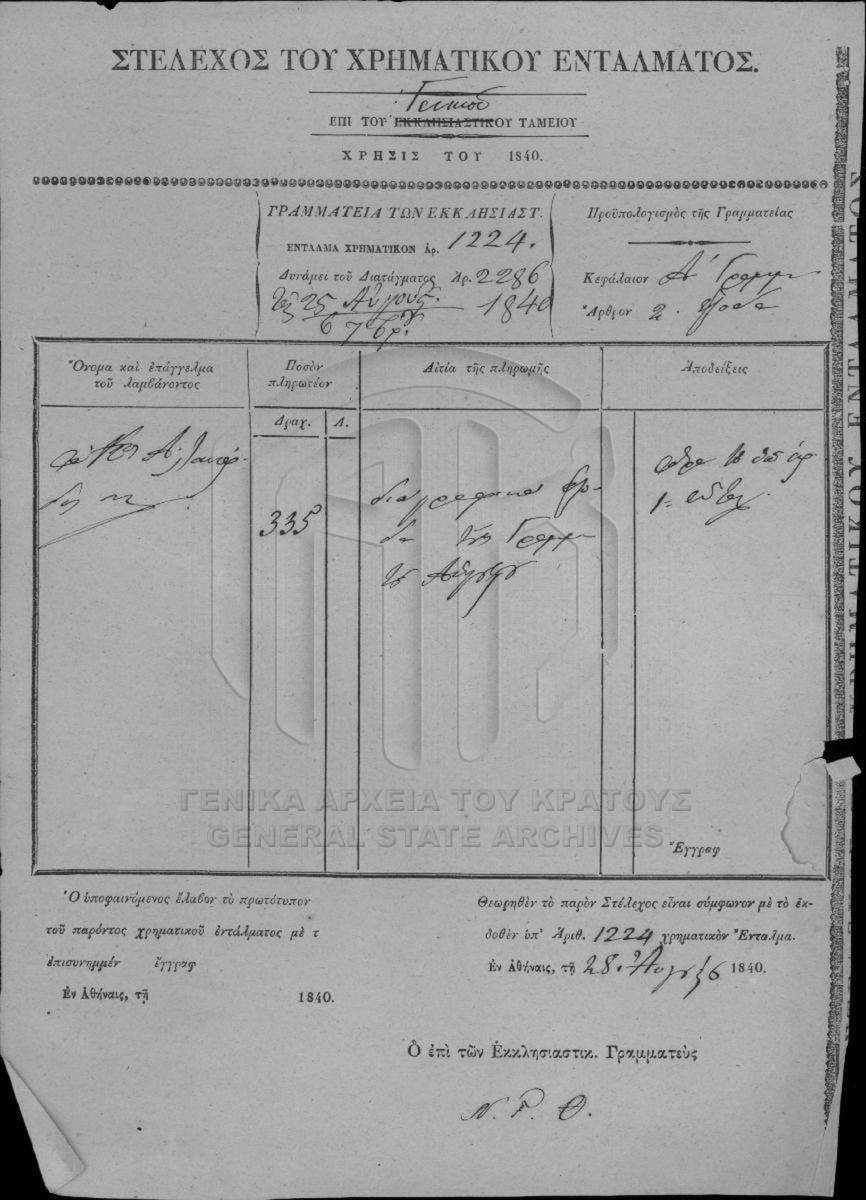 ΣΤΕΛΕΧΟΣ ΤΟΥ ΧΡΗΜΑΤΙΚΟΥ ΕΝΤΑΛΜΑΤΟΣ.
Γενικοῦ
ΕΠΙ ΤΟΥ ΕΚΚΛΗΣΙΑΣΤΙΚΟΥ ΤΑΜΕΙΟΥ
ΧΡΗΣΙΣ ΤΟΥ 1840.
ΓΡΑΜΜΑΤΕΙΑ ΤΩΝ ΕΚΚΛΗΣΙΑΣΤ.
ΕΝΤΑΛΜΑ ΧΡΗΜΑΤΙΚΟΝ ἀρ. 1224.
Δυνάμει τοῦ Διατάγματος Ἀρ. 2286
τῆς 25 Αὐγούς. 1840
6 7βρ.
Προϋπολογισμὸς τῆς Γραμματείας
Κεφάλαιον Α΄ Γραμμ
Ἄρθρον 2.
Ὄνομα καὶ ἐπάγγελμα
τοῦ λαμβάνοντος
Ποσὸν
πληρωτέον
Αἰτία τῆς πληρωμῆς
Ἀποδείξεις
Δραχ. Λ.
335
διαγραφικὰ ἔξο-
δα τῆς Γραμμ
τ Αὐγούστου
Ἔγγραφ
ΓΕΝΙΚΑ ΑΡΧΕΙΑ ΤΟΥ ΚΡΑΤΟΥΣ
GENERAL STATE ARCHIVES
Ὁ ὑποφαινόμενος ἔλαβον τὸ πρωτότυπον
τοῦ παρόντος χρηματικοῦ ἐντάλματος μὲ τ
ἐπισυνημμέν ἔγγραφ
Ἐν Ἀθήναις, τῇ 1840.
Θεωρηθὲν τὸ παρὸν Στέλεχος εἶναι σύμφωνον μὲ τὸ ἐκ-
δοθὲν ὑπ' Ἀριθ. 1224 χρηματικὸν Ἔνταλμα.
Ἐν Ἀθήναις, τῇ 28. Αὐγούς 1840.
Ὁ ἐπὶ τῶν Ἐκκλησιαστικ. Γραμματεὺς
Ν. Γ. Θ.